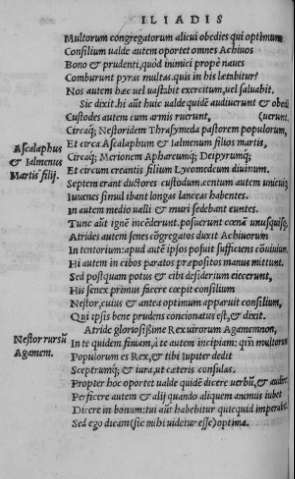 ILIADIS
Multorum congregatorum alicui obedies qui optimum
Consilium ualde autem oportet omnes Achiuos
Bono & prudenti, quòd inimici propè naues
Comburunt pyras multas. quis in his lætabitur?
Nos autem hæc uel uastabit exercitum, uel saluabit.
Sic dixit. hi aũt huic ualde quidē audiuerunt & obedi
Custodes autem cum armis ruerunt, (uerunt.
Circaq́; Nestoridem Thrasymeda pastorem populorum,
Ascalaphus & Ialmenus Martis filij.
Et circa Ascalaphum & Ialmenum filios martis,
Circaq́; Merionem Aphareumq́; Deipyrumq́;
Et circum creantis filium Lycomedeum diuinum.
Septem erant ductores custodum. centum autem unicuiq;
Iuuenes simul ibant longas lanceas habentes.
In autem medio ualli & muri sedebant euntes.
Tunc aũt ignē incēderunt. posuerunt cœnā unusquisq;
Atrides autem senes cōgregatos duxit Achiuorum
In tentorium: apud autē ipsos posuit sufficiens cōuiuium
Hi autem in cibos paratos præpositos manus mittunt.
Sed postquam potus & cibi desiderium eiecerunt,
His senex primus facere cœpit consilium
Nestor, cuius & antea optimum apparuit consilium,
Qui ipsis bene prudens concionatus est, & dixit.
Atride gloriosissime Rex uirorum Agamemnon,
Nestor rursũ Agamem.
In te quidem finiam, à te autem incipiam: qm̄ multorum
Populorum es Rex, & tibi Iupiter dedit
Sceptrumq́; & iura, ut cæteris consulas.
Propter hoc oportet ualde quidē dicere uerbũ, & audire
Perficere autem & alij quando aliquem animus iubet
Dicere in bonum: tui aũt habebitur quicquid
Sed ego dicam (sic mihi uidetur esse) optima.